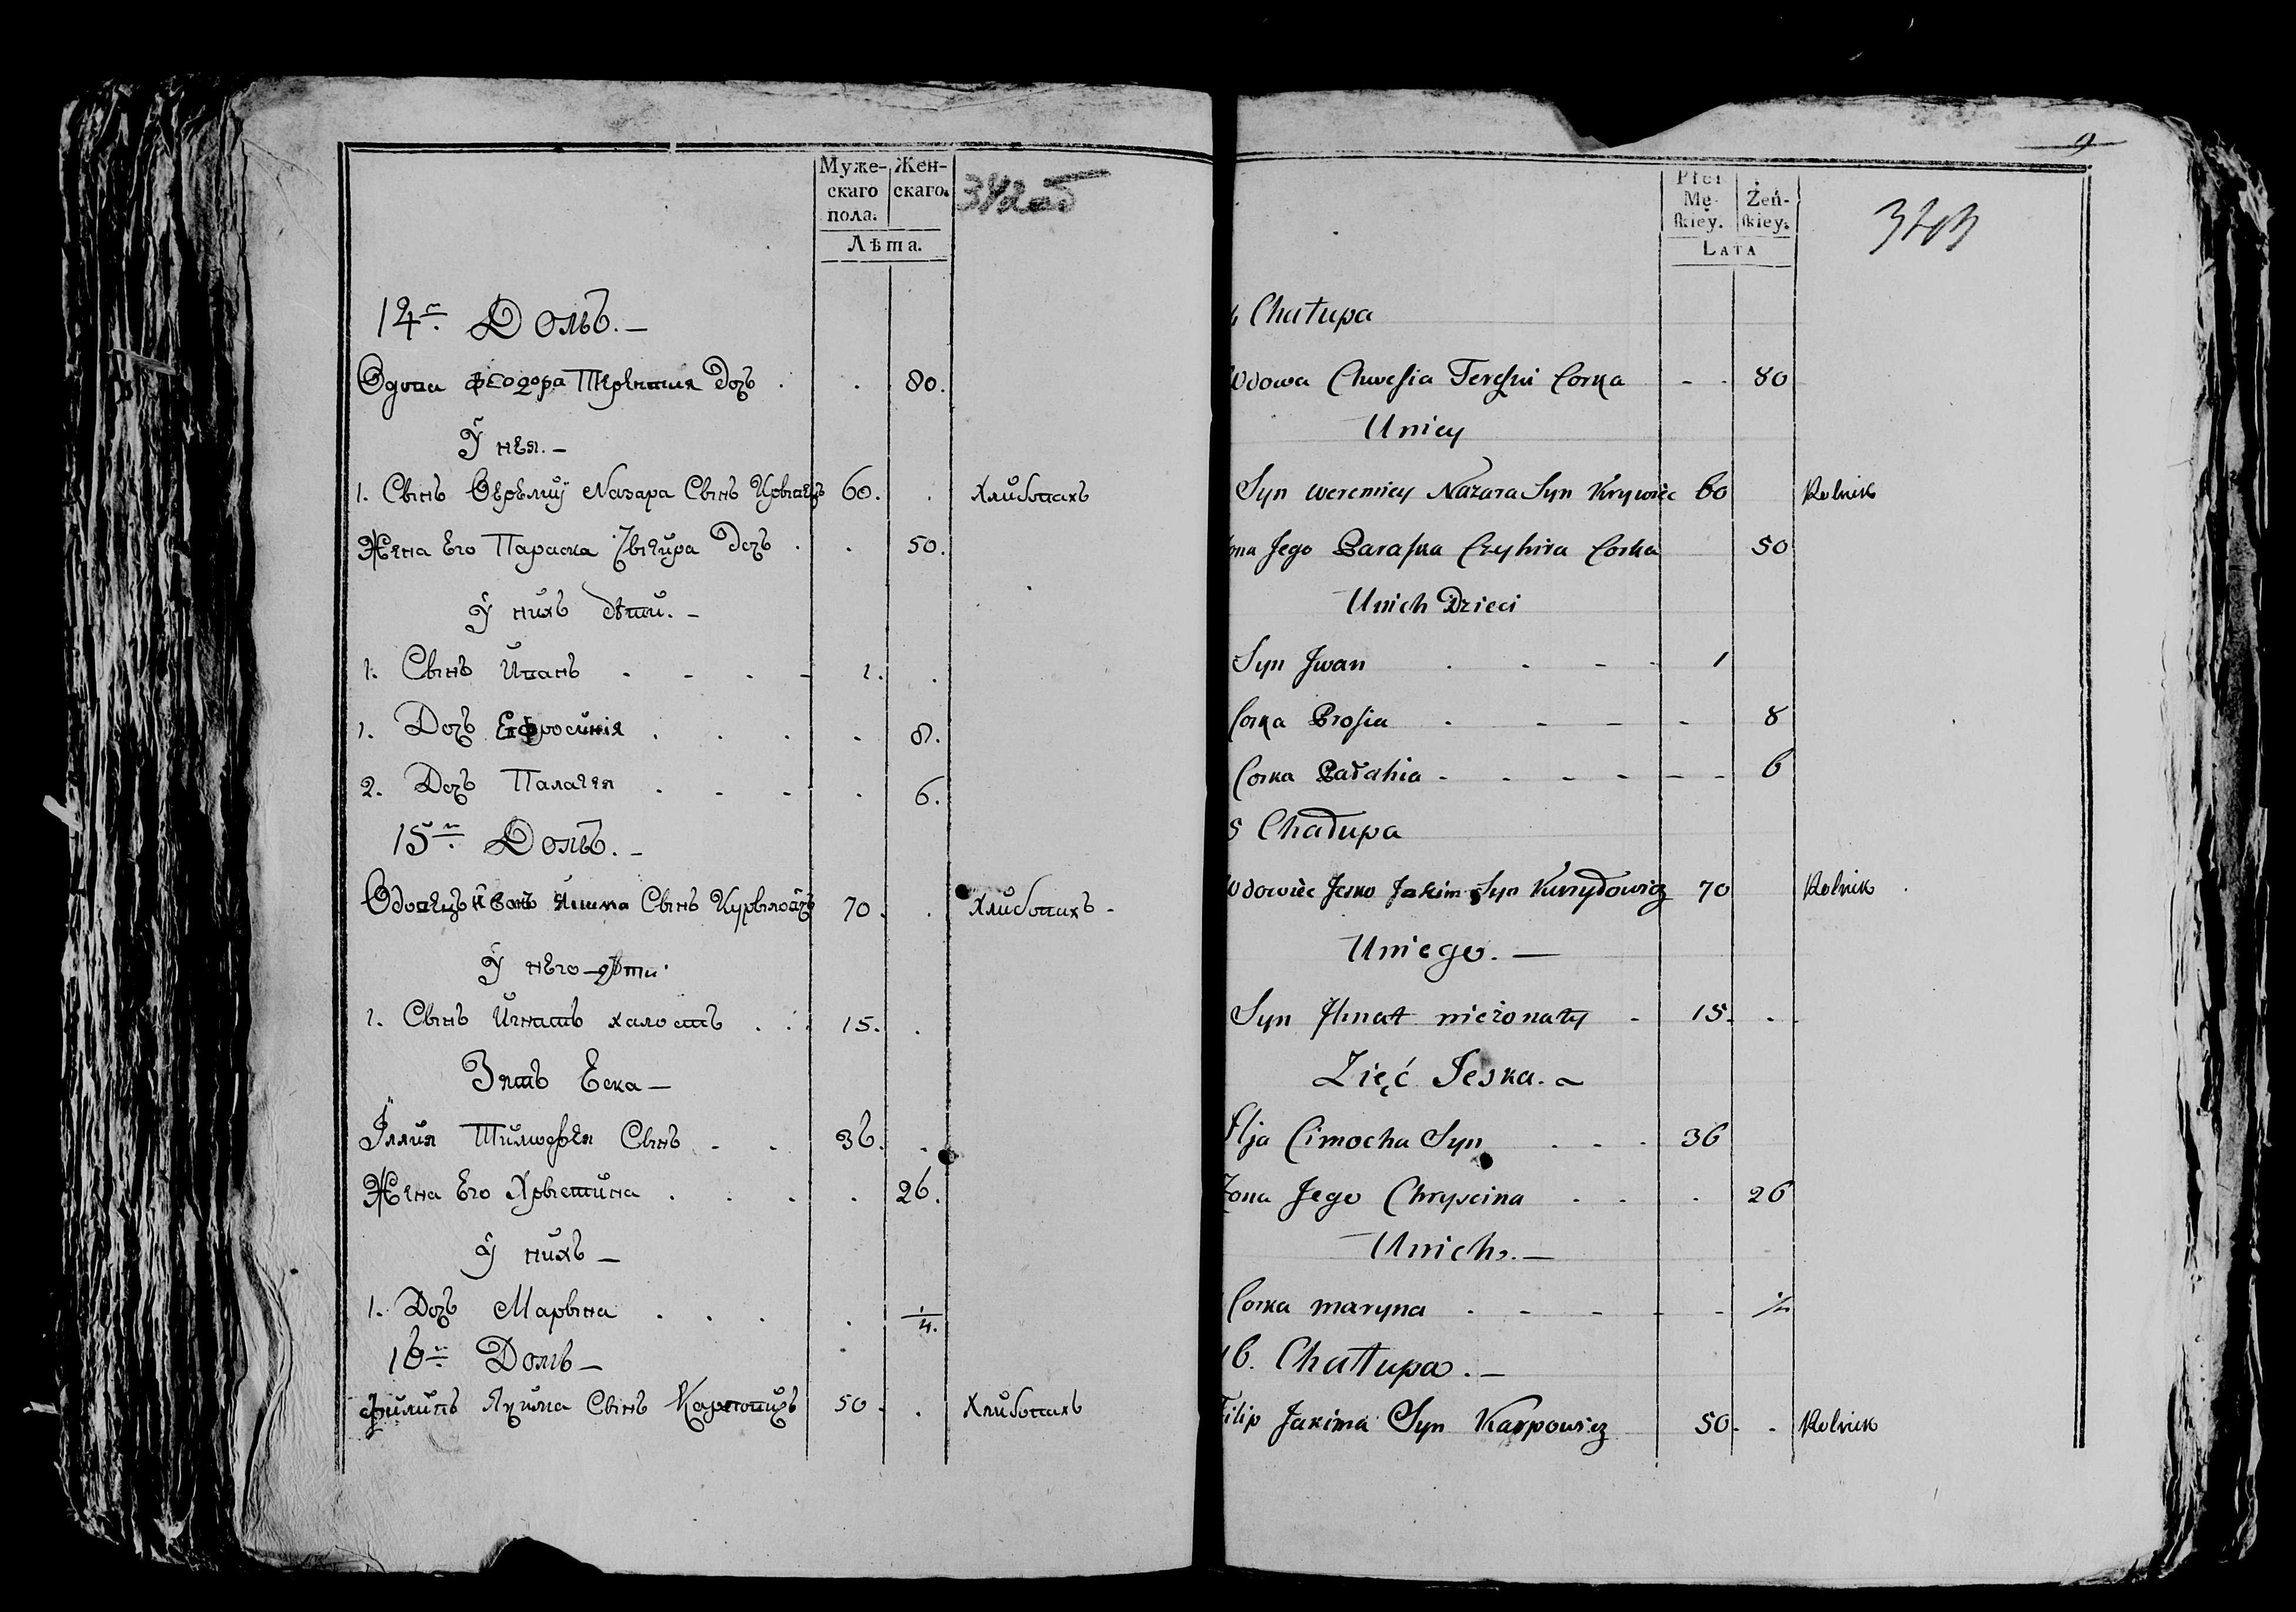 Муже-
скаго
пола.
Жен-
скаго.
Лѣта.
14й Домъ. —
Феодора Дочь . . 80.
У нея. —
1. Сынъ Назара Сынъ 60. . Хлибопахъ
Жена Его Параска Дочь . . 50.
У нихъ дѣти. —
1. Сынъ Иванъ . - . - 1. .
1. Дочь Ефросинія . . . . 8.
2. Дочь Палагея . - - . 6.
15й Домъ. —
Сынъ 70. . Хлибопахъ -
У него дѣти
1. Сынъ Игнатъ халостъ . . 15. .
Зять Еска —
Іллия Тимофея Сынъ . . 36. .
Жена Его Хрыстина . . . . 26.
У нихъ —
1. Дочь Марына . . . . 1/4.
16й Домъ —
Филипъ Якима Сынъ Карповичъ 50. . Хлибопахъ
9
Płci
Mę-
ſkiey.
Żeń-
ſkiey.
LATA
343
Chałupa
Wdowa Chwesia Corka - . 80
Uniey
Syn weremiey Nazara Syn Krywiec 60 Rolnik
Jego Paraska Corka 50
Unich Dzieci
Syn Jwan . . - . 1
Corka Prosia . - - - 8
Corka Pałahia - . - - - - 6
5 Chałupa
Wdowiec Jesko Jakim Syn 70 Rolnik .
Uniego. —
Syn Jhnat nieżonaty - 15. . .
Zięć Jeska.
Ilja Cimocha Syn . - . 36
Żona Jego Chryscina . . . 26
Unich. —
Corka maryna . - - - -
16. Chałłupa. —
Filip Jakima Syn Karpowicz 50. . Rolnik